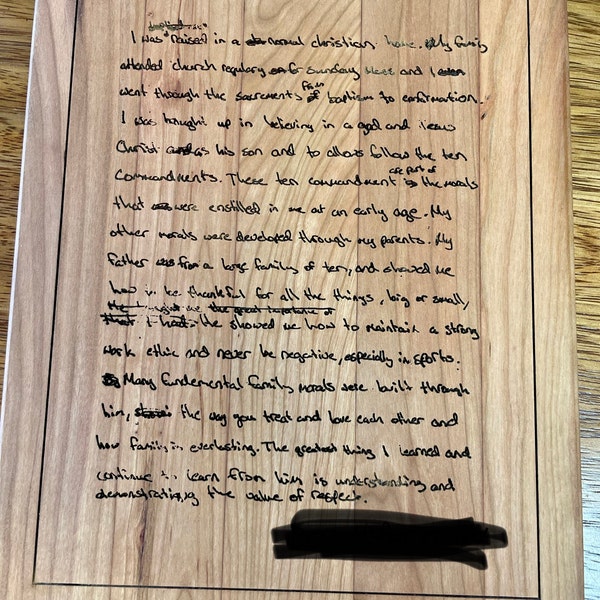 I was "raised in a normal christian home. My family
attended church regulary for sunday and I
went through the sacraments from baptism to confirmation.
I was brought up in believing in a god and
Christ as his son and to follow the ten
commandments. These ten commandment are part of the morals
that were enstilled in me at an early age. My
other morals were developed through my parents. My
father was from a large family of ten, and showed me
how to be thankful for all the things, big or small,
that I had. He showed me how to maintain a strong
work ethic and never be negative, especially in sports.
Many fundemental family morals were built through
him, the way you treat and love each other and
how family is everlasting. The greatest thing I learned and
continue to learn from him is understanding and
demonstrating the value of respect.